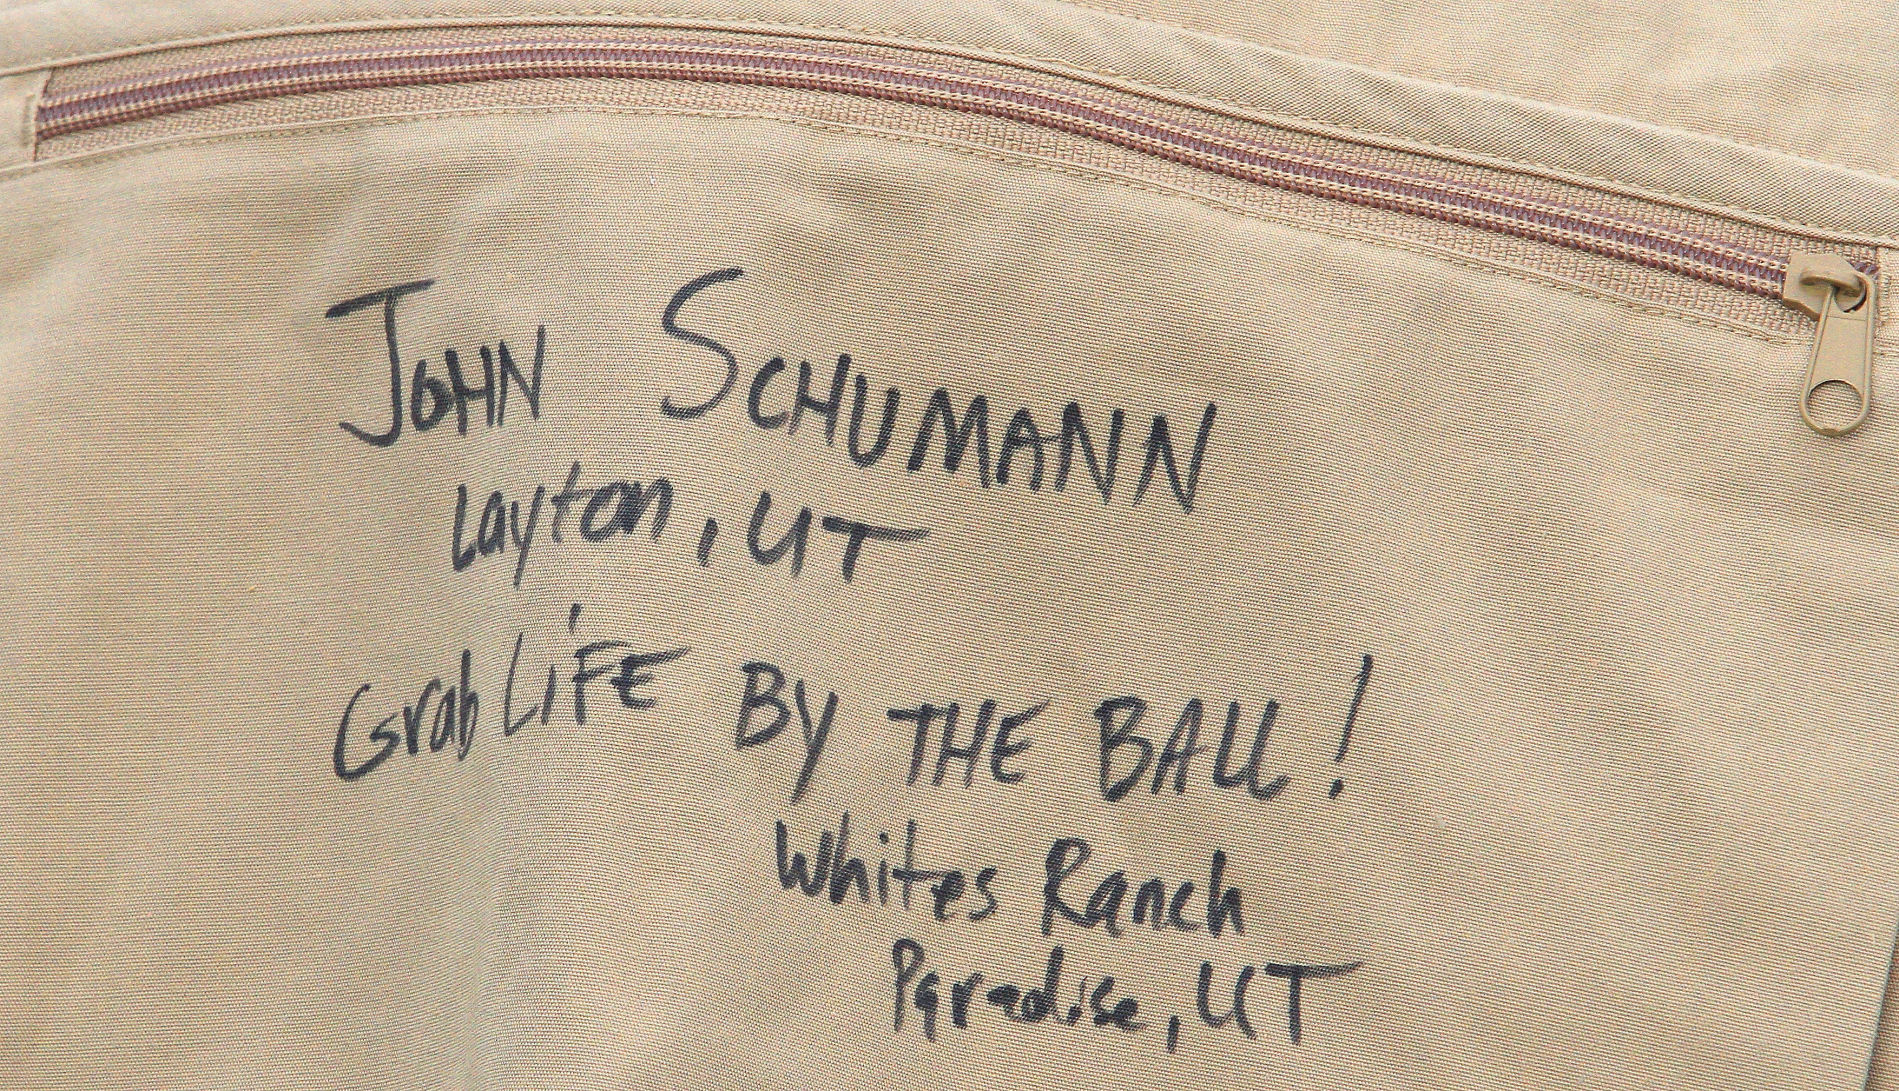 JOHN SCHUMANN
Layton, UT
Grab LiFE BY THE BALL!
Whites Ranch
Paradise, UT